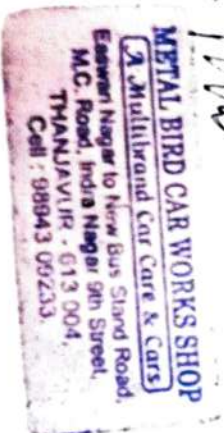 METAL BIRD CAR WORKS SHOP
(A Multibrand Car Care & Cars)
Easwari Nagar to New Bus Stand Road,
M.C. Road, Indra Nagar 9th Street,
THANJAVUR - 613 004,
Cell : 98943 09233,